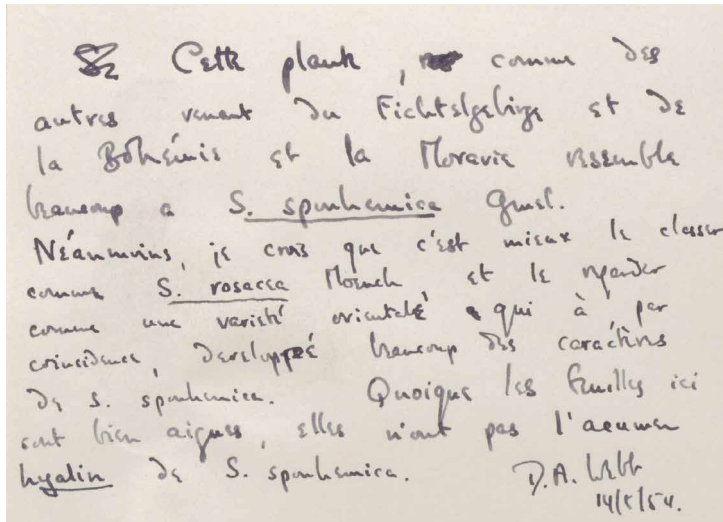 Cette plante, comme des
autres venant du Fichtelgebirge et de
la Bohémie et la Moravie ressemble
beaucoup a S. sponhemica Gmel.
Néanmoins, je crois que c'est mieux le classer
comme S. rosacea Moench, et le regarder
comme une varieté orientale qui à par
coincidence, developpé beaucoup des caractères
de S. sponhemica. Quoique les feuilles ici
sont bien aigues, elles n'ont pas l'acumen
hyalin de S. sponhemica. D.A. Webb
14/5/54.